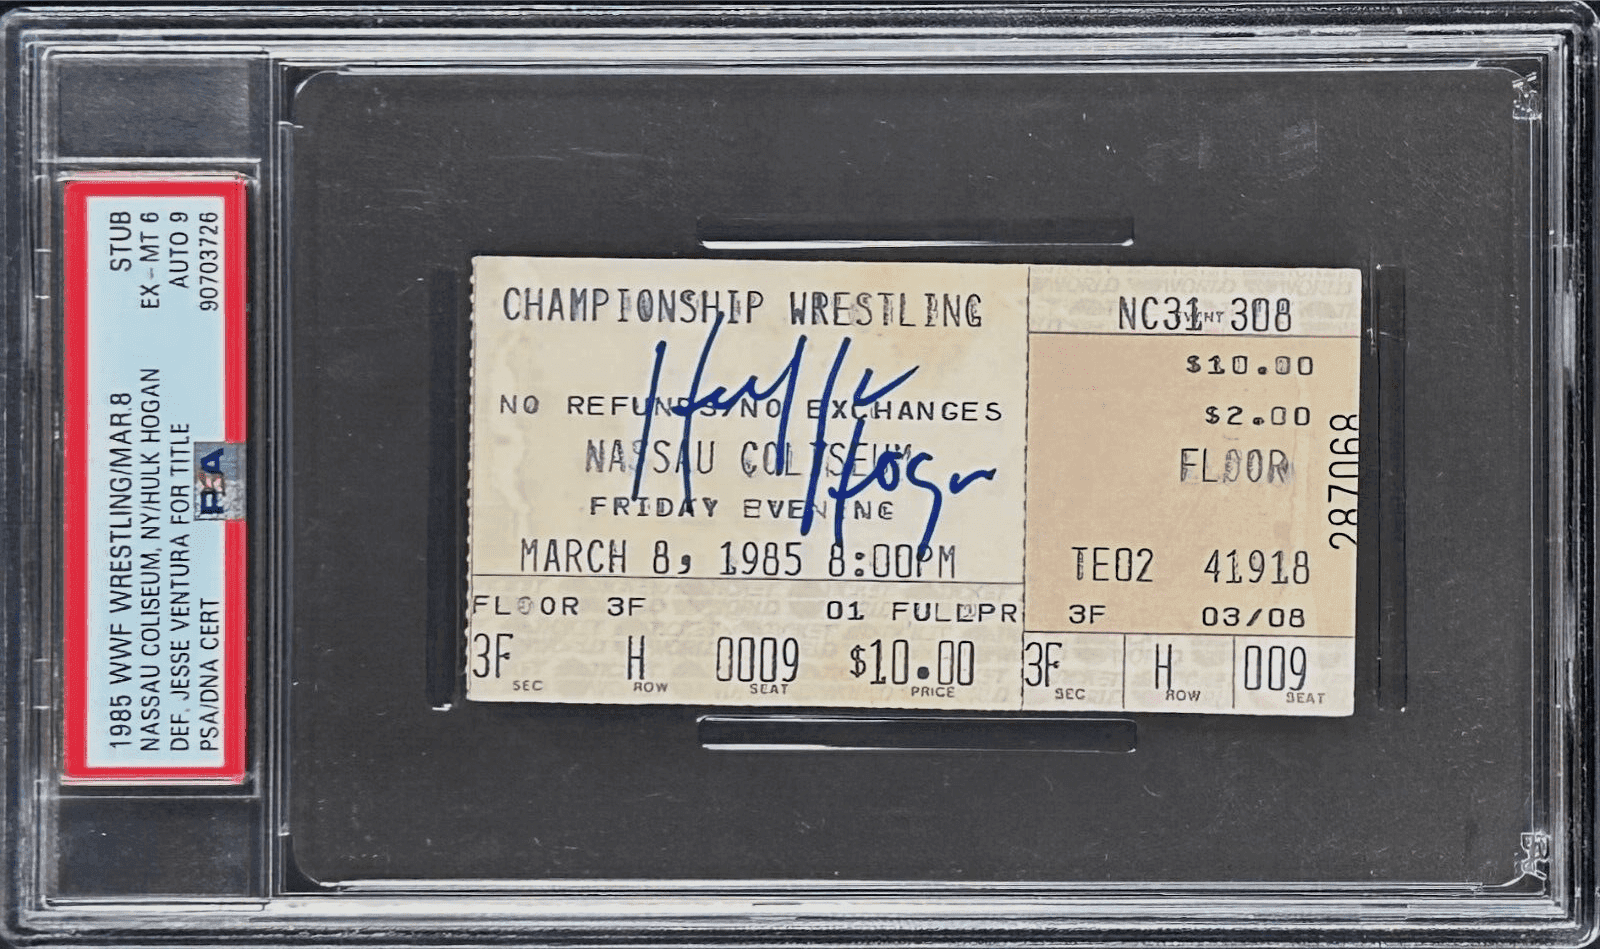 1985 WWF WRESTLING/MAR.8 STUB
NASSAU COLISEUM, NY/HULK HOGAN EX-MT 6
DEF. JESSE VENTURA FOR TITLE AUTO 9
PSA/DNA CERT 90703726
PSA
CHAMPIONSHIP WRESTLING
Hulk Hogan
NO REFUNDS/NO EXCHANGES
NASSAU COLISEUM
FRIDAY EVENING
MARCH 8, 1985 8:00PM
FLOOR 3F 01 FULLPR
3F H 0009 $10.00
SEC ROW SEAT PRICE
NC31 EVENT 308
$10.00
$2.00
FLOOR
TE02 41918
3F 03/08
3F H 009
SEC ROW SEAT
287068